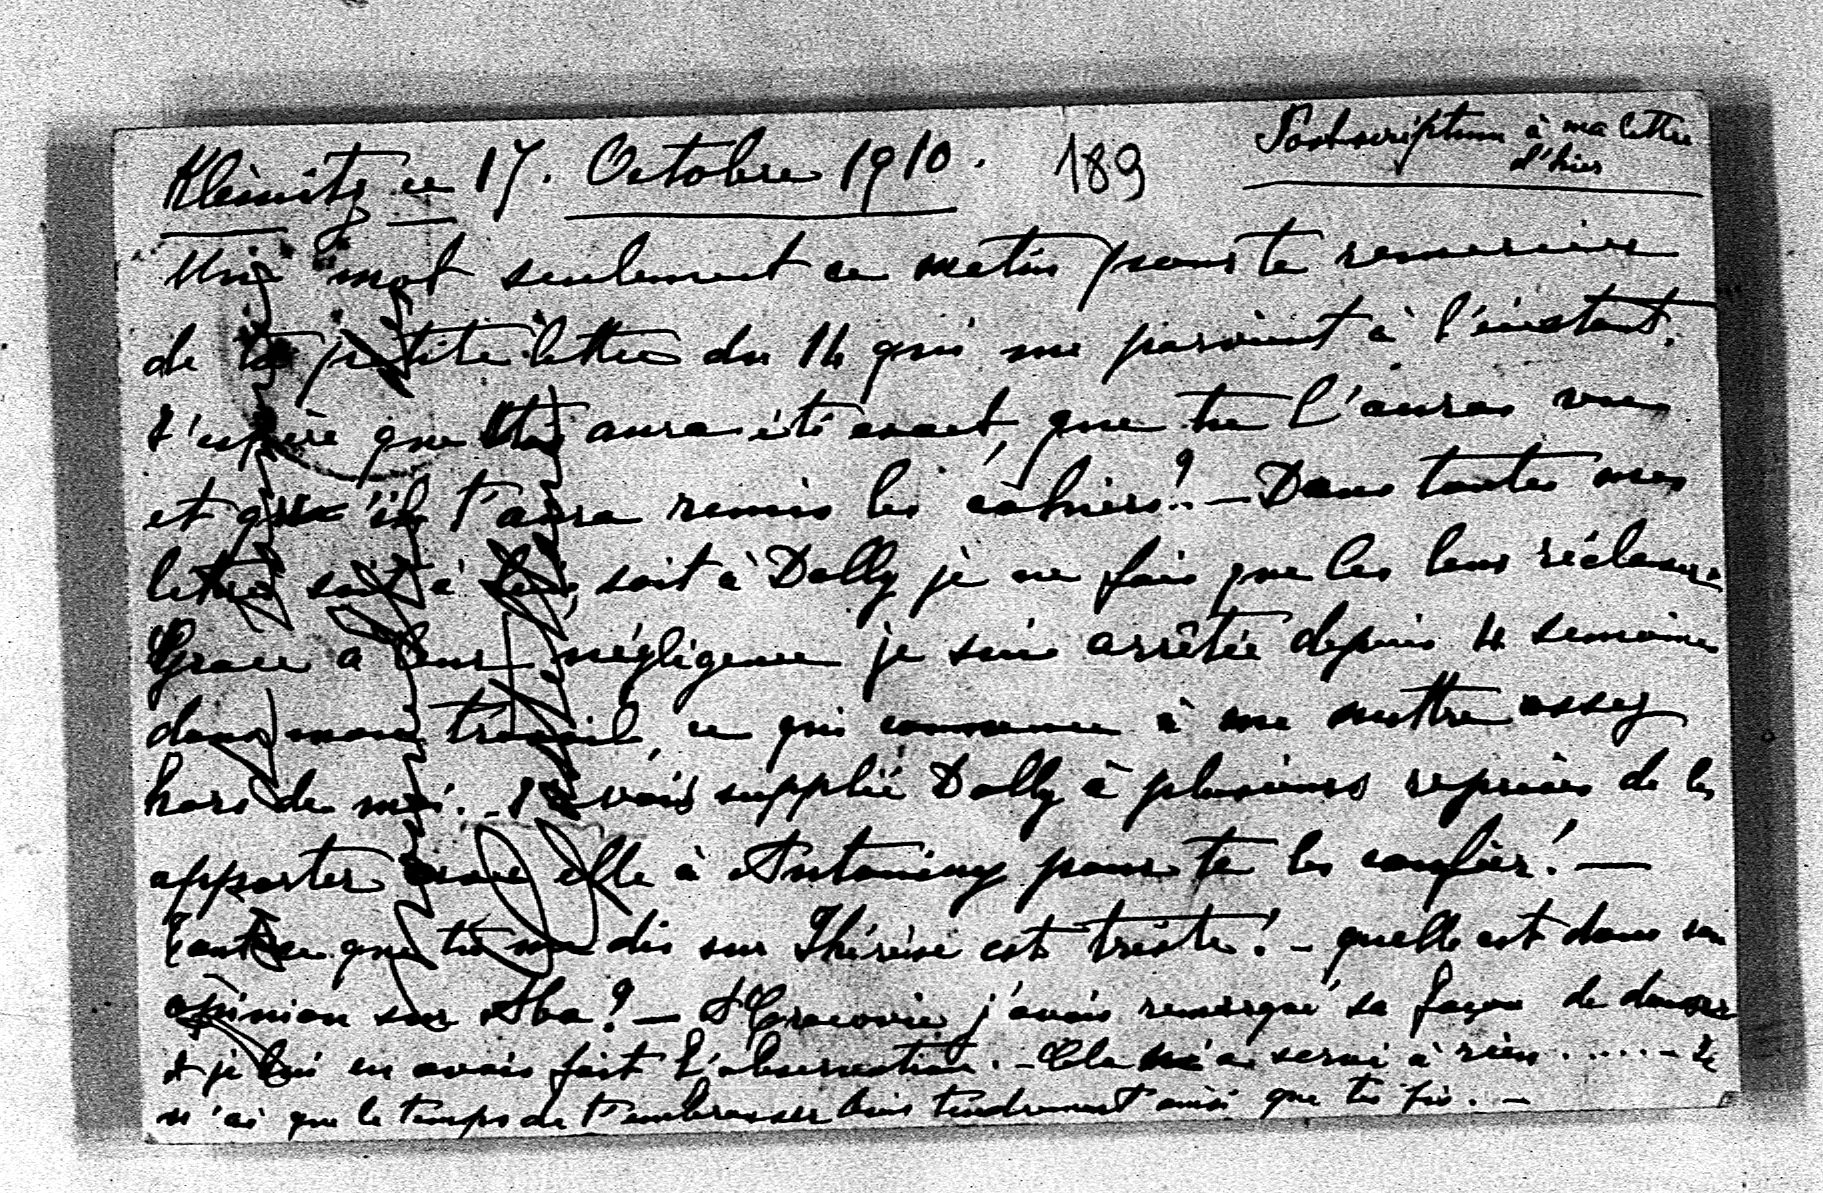 Kleinitz ce 17. Octobre 1910. 189
Postscriptum à ma lettre
d'hier
Un mot seulement ce matin pour te remercier
de ta petite lettre du 14 qui me parvient à l'instant.
J'espère que aura été exact, que tu l'auras vu
et qu'il t'aura remis les cahiers? — Dans toutes mes
lettres soit à lui soit à Dolly je ne fais que les leur réclamer.
Grace à leur négligence je suis arrêtée depuis 4 semaines
dans mon travail, ce qui commence à me mettre assez
hors de moi. — J'avais supplié Dolly à plusieurs reprises de les
apporter avec elle à Antoniny pour te les confier! —
tout ce que tu me dis sur Thérèse est triste! — quelle est donc son
opinion sur Aba? — A Cracovie j'avais remarqué sa façon de danser
et je lui en avais fait l'observation. — Cela n'a servi à rien ..... — Je
n'ai que le temps de t'embrasser bien tendrement ainsi que tes fils. —